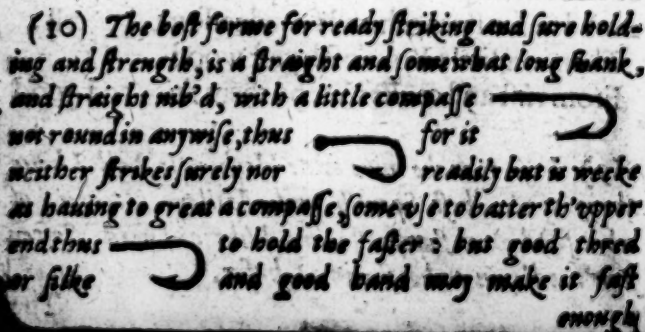 (10) The beſt forme for ready ſtriking and ſure hold-
ing and ſtrength, is a ſtraight and ſomewhat long ſhank,
and ſtraight nib'd, with a little compaſſe
not round in anywiſe, thus for it
neither ſtrikes ſurely nor readily but is weeke
as hauing to great a compaſſe, ſome vſe to batter th'vpper
end thus to hold the faſter: but good thred
or ſilke and good band may make it faſt
enough